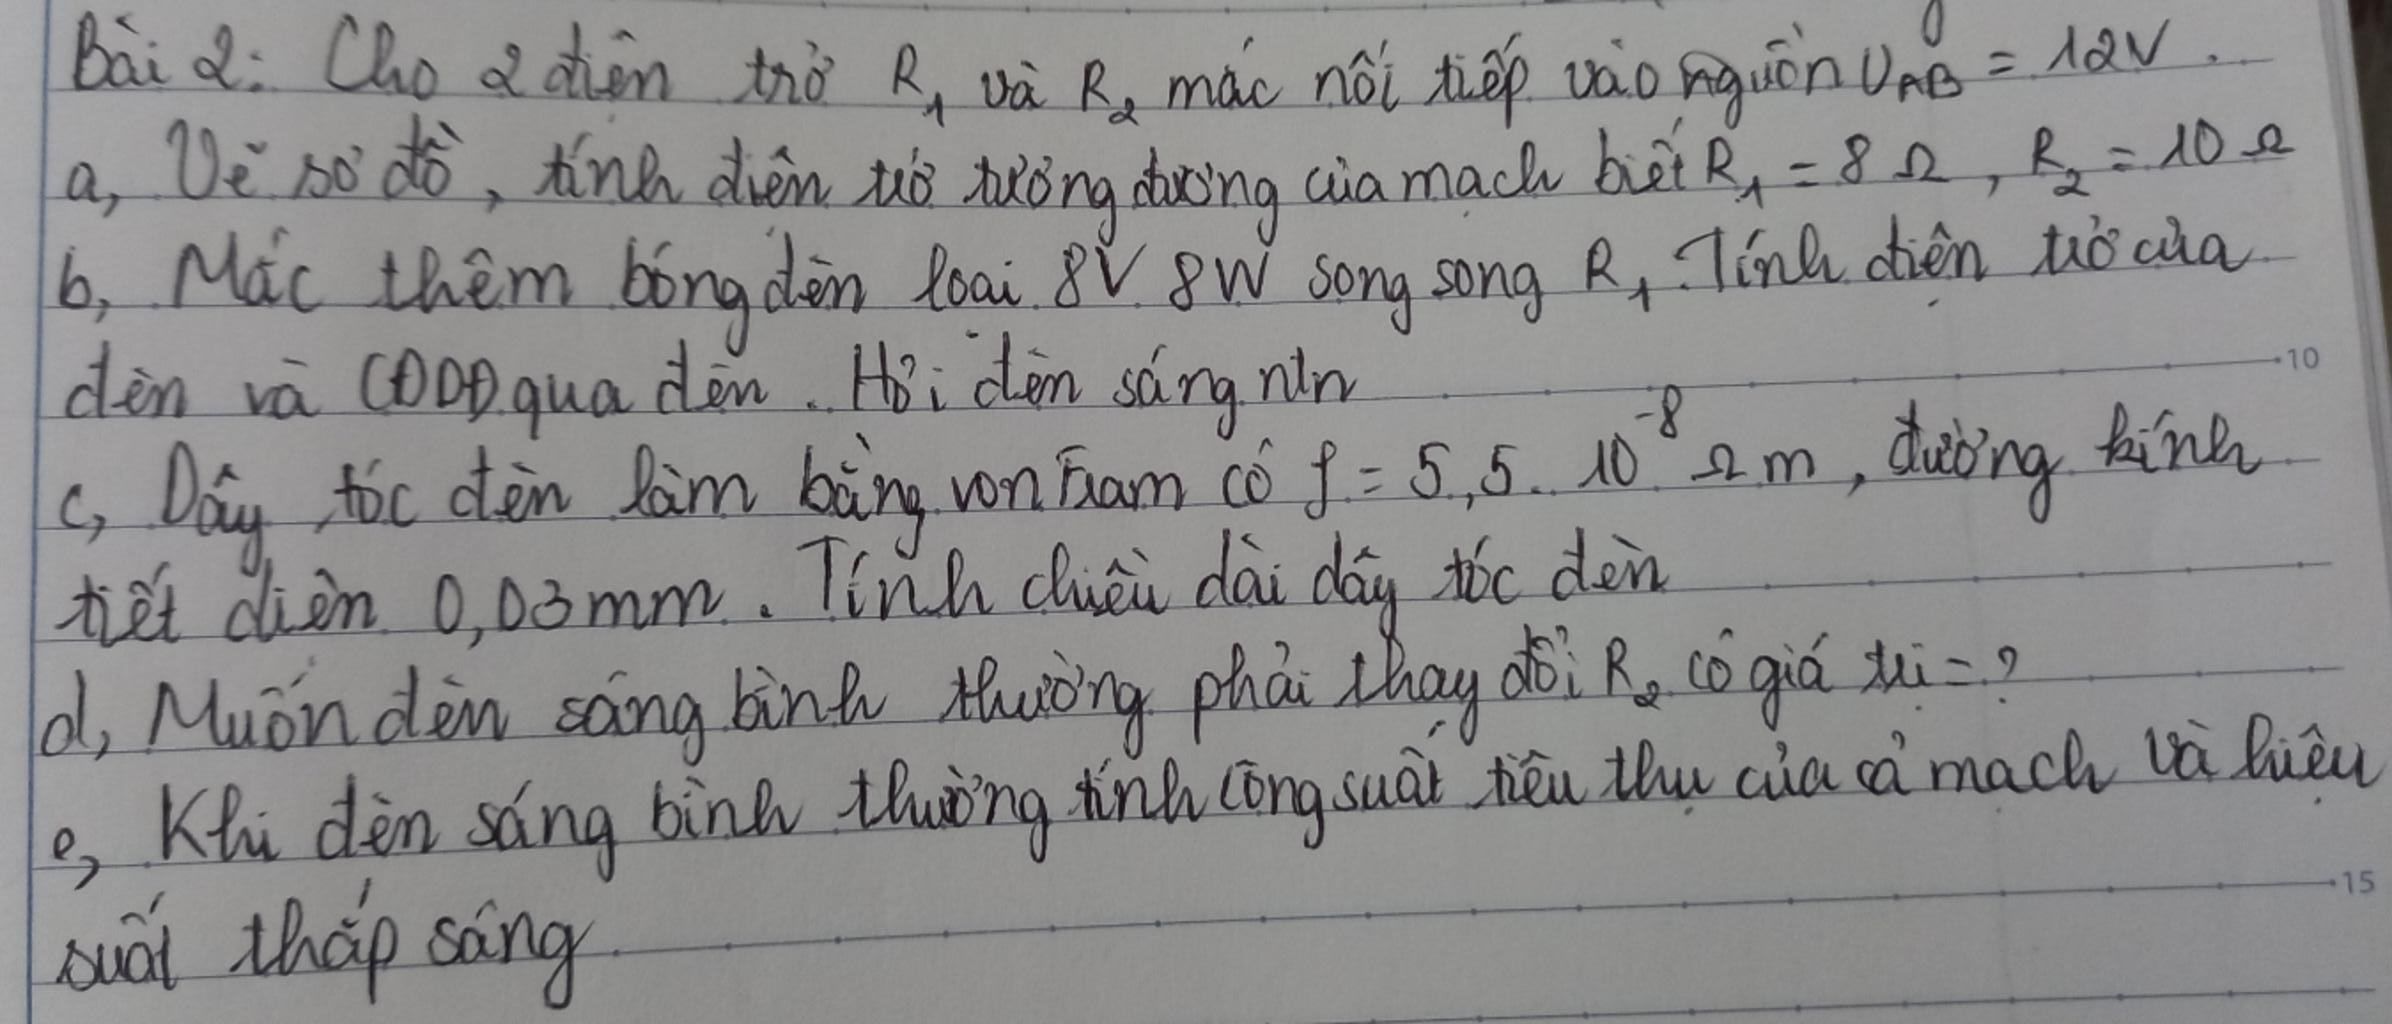 Bài 2: Cho 2 điện trở R₁ và R₂ mắc nối tiếp vào nguồn U_AB = 12V.
a, Vẽ sơ đồ, tính điện trở tương đương của mạch biết R₁ = 8 Ω, R₂ = 10 Ω
b, Mắc thêm bóng đèn loại 8V 8W song song R₁. Tính điện trở của
đèn và CĐDĐ qua đèn. Hỏi đèn sáng ntn
c, Dây tóc đèn làm bằng vonfram có ρ = 5,5. 10⁻⁸ Ωm, đường kính
tiết diện 0,03mm. Tính chiều dài dây tóc đèn
d, Muốn đèn sáng bình thường phải thay đổi R₂ có giá trị = ?
e, Khi đèn sáng bình thường tính công suất tiêu thụ của cả mạch và hiệu
suất thắp sáng
10
15